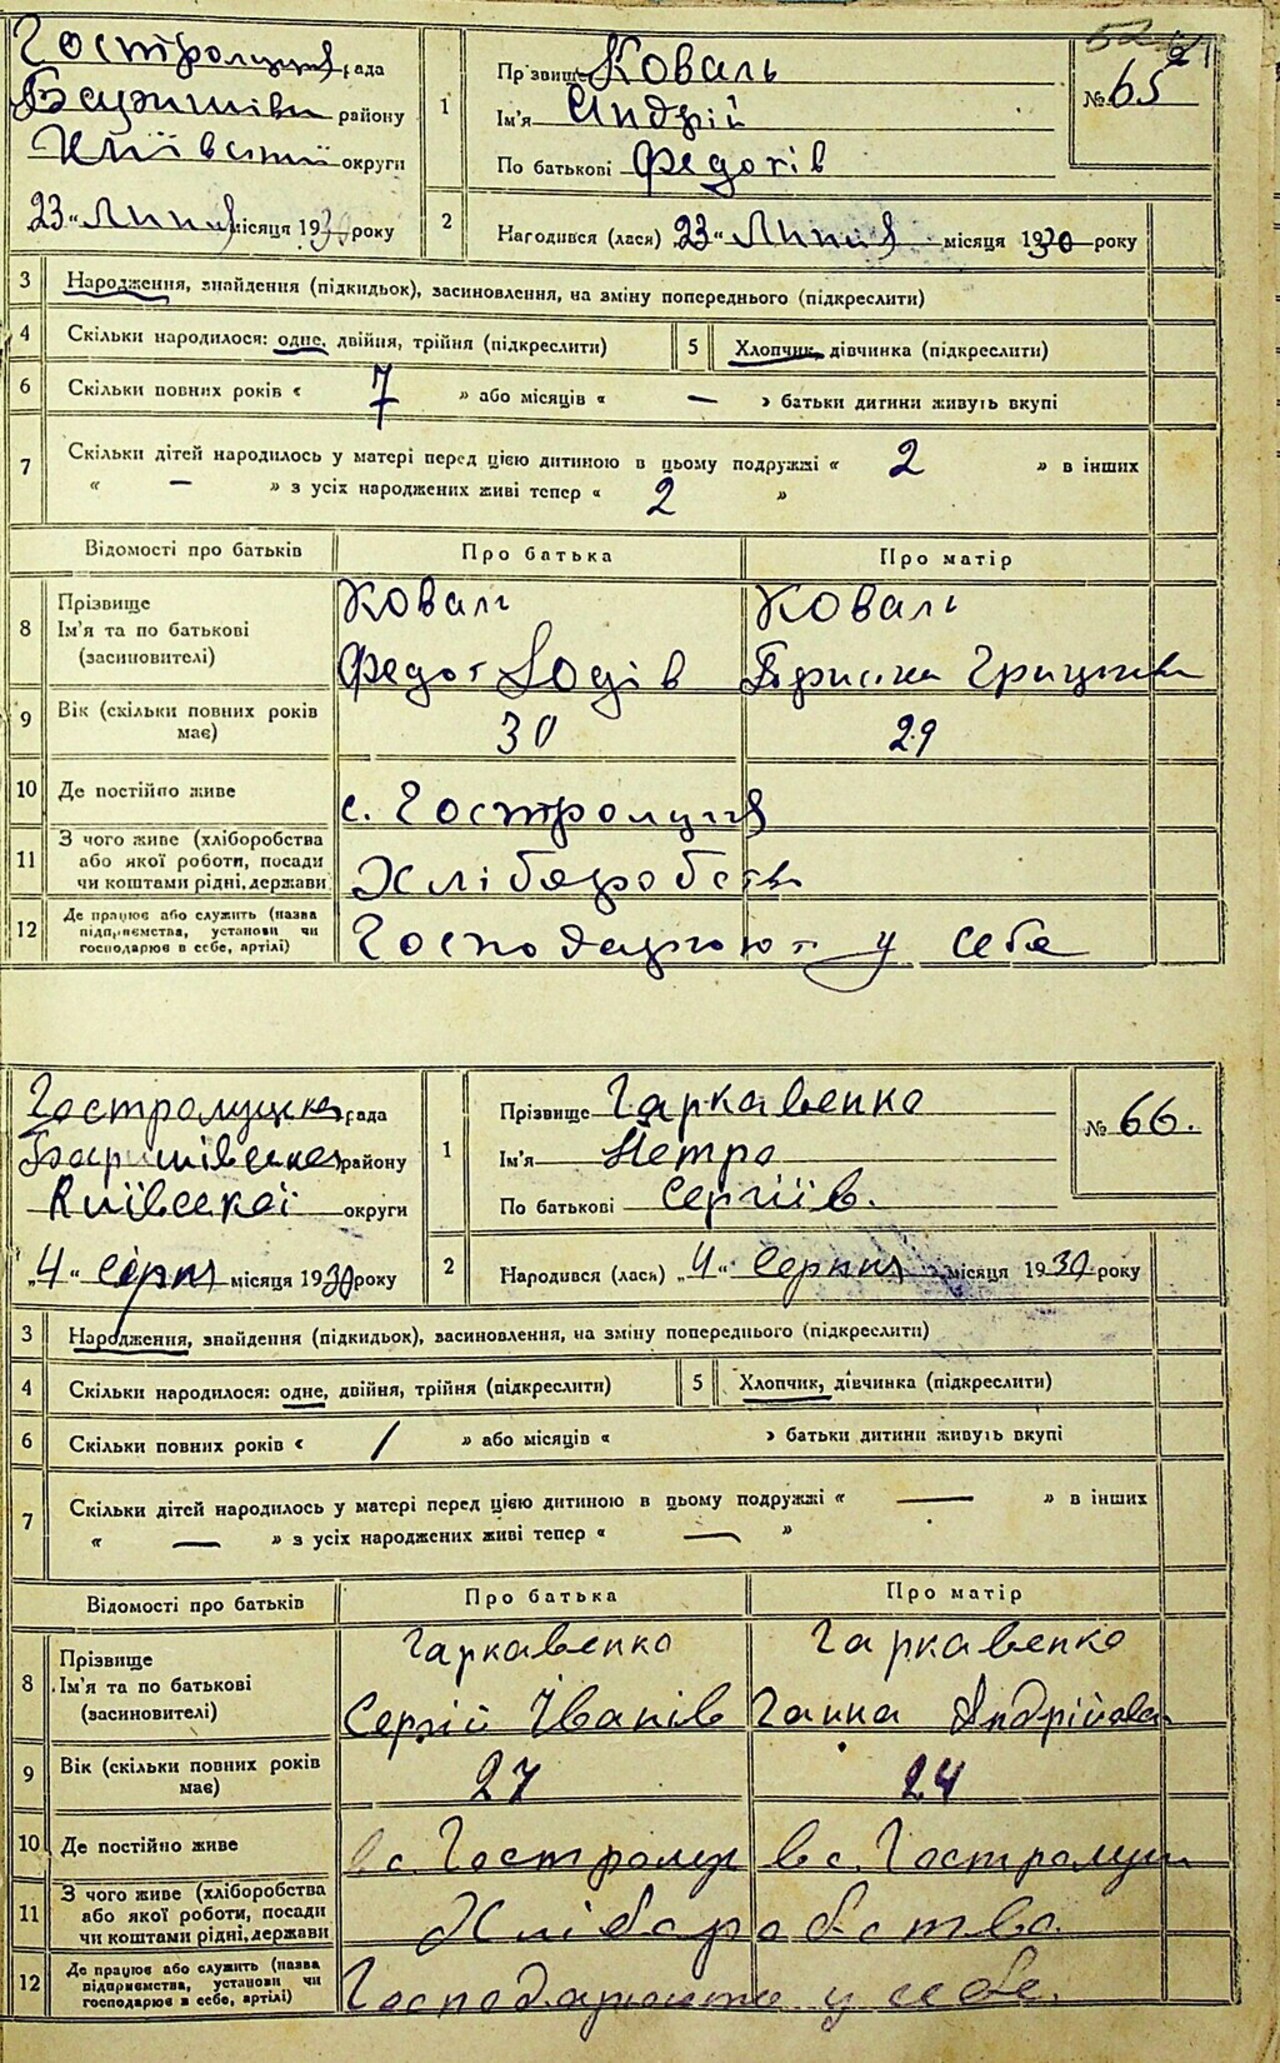 Гостролуцка рада
району
Київської округи
23 " Липня місяця 1930 року
1
Прізвище Коваль
Ім'я Андрій
По батькові Федотів
№ 65
2
Народився (лася) 23 " Липня місяця 1930 року
3 Народження, знайдення (підкидьок), засиновлення, на зміну попереднього (підкреслити)
4 Скільки народилося: одне, двійня, трійня (підкреслити) 5 Хлопчик, дівчинка (підкреслити)
6 Скільки повних років « 7 » або місяців « — » батьки дитини живуть вкупі
7 Скільки дітей народилось у матері перед цією дитиною в цьому подружжі « 2 » в інших
« — » з усіх народжених живі тепер « 2 »
Відомості про батьків Про батька Про матір
8 Прізвище
Ім'я та по батькові
(засиновителі)
Коваль
Федот
Коваль
9 Вік (скільки повних років
має)
30 29
10 Де постійно живе с. Гостролуччя
11 З чого живе (хліборобства
або якої роботи, посади
чи коштами рідні, держави
Хліборобства
12 Де працює або служить (назва
підприємства, установи чи
господарює в себе, артілі)
Господарюют у себе
Гостролуцка рада
району
Київської округи
„ 4 " серпня місяця 1930 року
1
Прізвище Гаркавенко
Ім'я Петро
По батькові Сергіїв.
№ 66.
2
Народився (лася) „ 4 " Серпня місяця 1930 року
3 Народження, знайдення (підкидьок), засиновлення, на зміну попереднього (підкреслити)
4 Скільки народилося: одне, двійня, трійня (підкреслити) 5 Хлопчик, дівчинка (підкреслити)
6 Скільки повних років « 1 » або місяців « » батьки дитини живуть вкупі
7 Скільки дітей народилось у матері перед цією дитиною в цьому подружжі « — » в інших
« — » з усіх народжених живі тепер « — »
Відомості про батьків Про батька Про матір
8 Прізвище
Ім'я та по батькові
(засиновителі)
Гаркавенко
Сергій Іванів
Гаркавенко
Ганна Андрійова
9 Вік (скільки повних років
має)
27 24
10 Де постійно живе в с. Гостролуч в с. Гостролучи
11 З чого живе (хліборобства
або якої роботи, посади
чи коштами рідні, держави
Хліборобства.
12 Де працює або служить (назва
підприємства, установи чи
господарює в себе, артілі)
у себе.